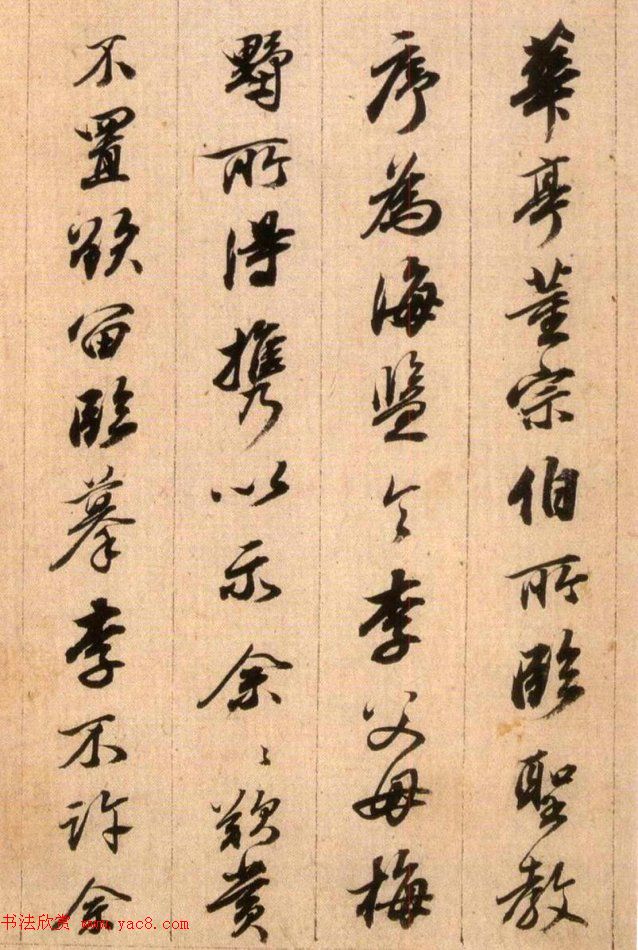 華亭董宗伯所臨聖教
序為海鹽令李父母梅
墅所得攜以示余〻歎賞
不置欲留臨摹李不許余
书法欣赏 www.yac8.com